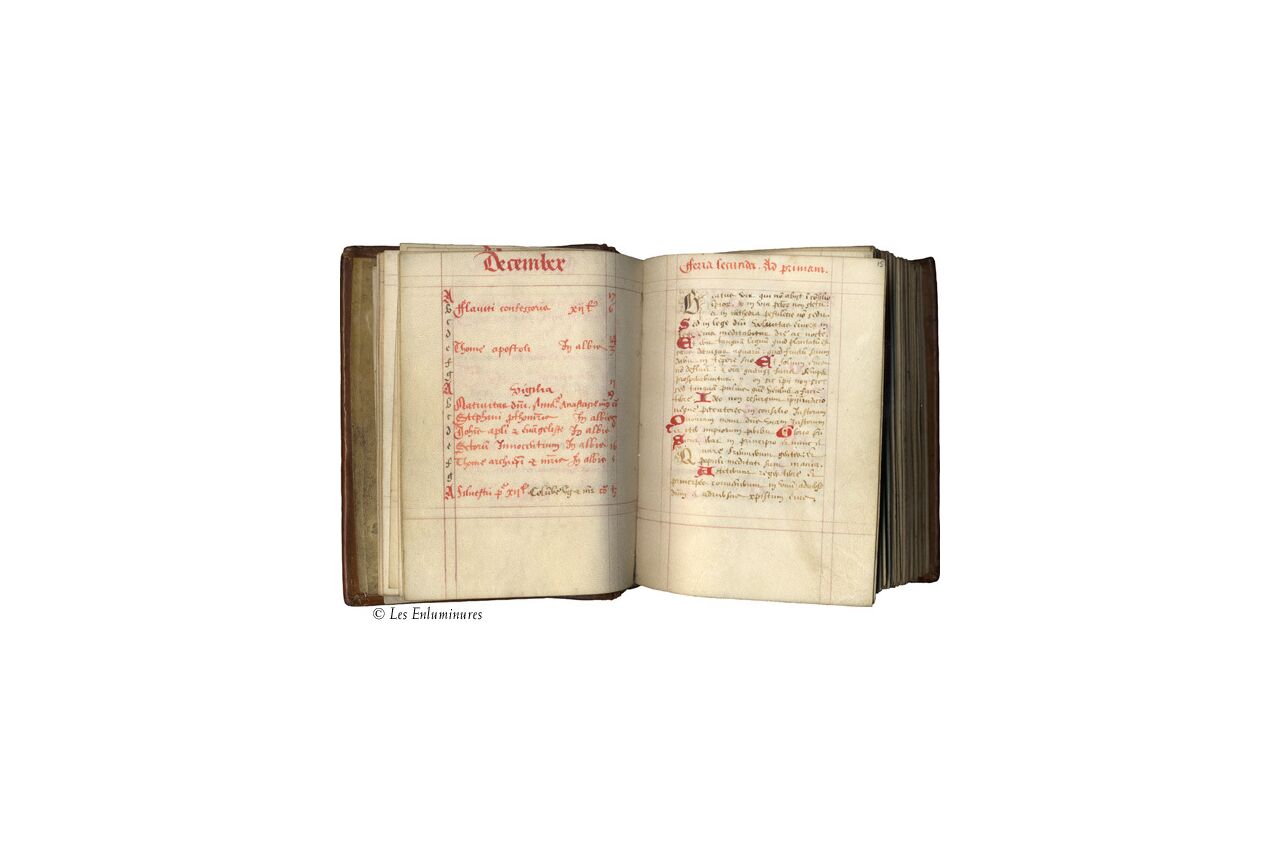 December
A
b Flaviti confessoris xii
c
d
e Thome apostoli In albis
f
g
A Vigilia
b Nativitas dm̄.
c Stephani In albis
d Joh̄is apl̄i & evangeliste In albis
e Sctorū Innocentium In albis
f Thome archiep̄i & m̄ris In albis
g
A Silvestri
fferia secunda. Ad primam.
15
Beatus vir qui nō abijt ī cōsilio
impior. & in via pctor. non stetit:
& in cathedra pestilētie nō sedit.
Sed in lege dn̄i voluntas eius: & in
lege eius meditabitur die ac nocte.
Et erit tanquā lignū quod plantatū est
secus decursus aquarū: quod fructū suum
dabit in tēpore suo Et folium eius
nō defluet: & oīa quecūq̄ faciet
prosperabuntur. Non sic impii non sic:
sed tanquā pulvis quē ventus a facie
terre. Ideo non resurgunt impii in iudicio
neque peccatores in consilio iustorum
Quoniam novit dn̄s viam iustorum
et iter impiorum peribit. Gloria
Sicut erat in principio et nunc &
Quare fremuerunt gentes: et
populi meditati sunt inania.
Astiterunt reges terre et
principes convenerunt in unū: adversus
dn̄m & adversus xpistum eius.
© Les Enluminures